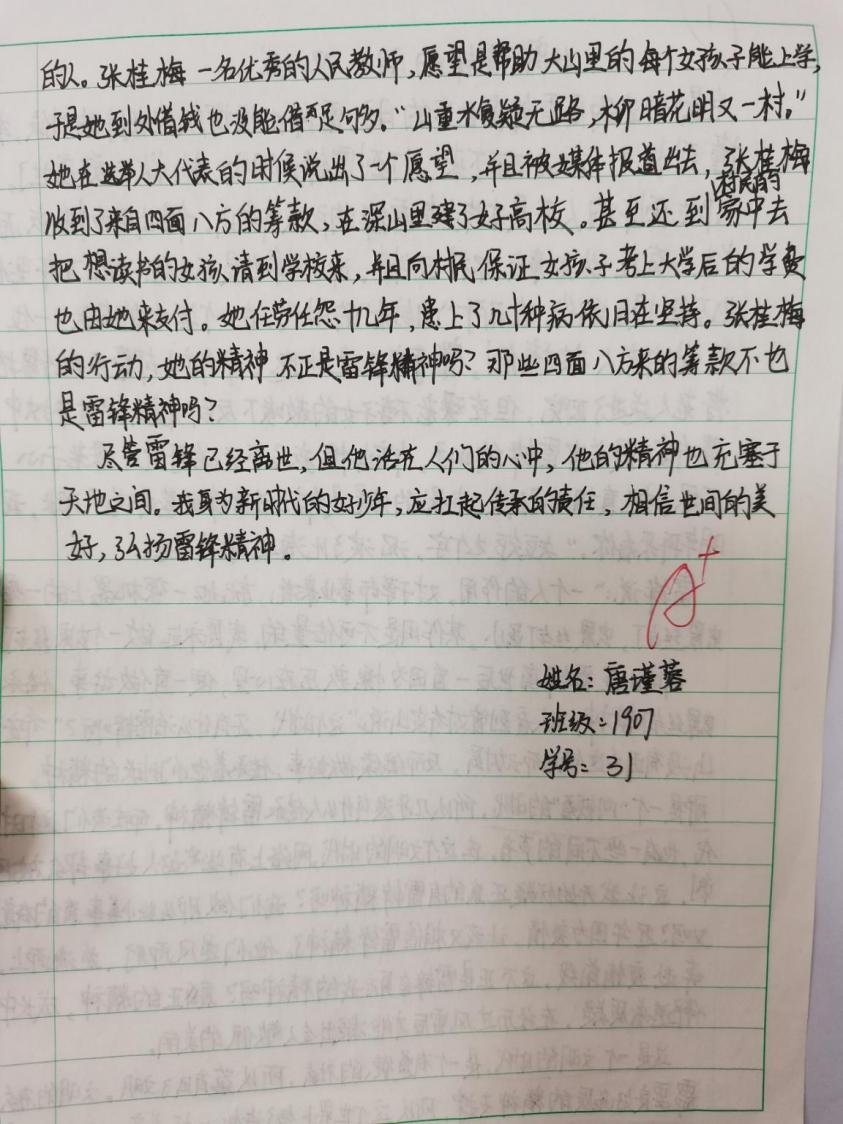 的人。张桂梅一名优秀的人民教师,愿望是帮助大山里的每个女孩子能上学,
于是她到处借钱也没能借两足够多。“山重水复疑无路,柳暗花明又一村。”
她在选举人大代表的时候说出了一个愿望,并且被媒体报道出去,张桂梅
收到了来自四面八方的筹款,在深山里建了女子高校。甚至还到村民的家中去
把想读书的女孩请到学校来,并且向村民保证女孩子考上大学后的学费
也由她来支付。她任劳任怨十几年,患上了几十种病依旧在坚持。张桂梅
的行动,她的精神不正是雷锋精神吗?那些四面八方来的筹款不也
是雷锋精神吗?
尽管雷锋已经离世,但他活在人们的心中,他的精神也充塞于
天地之间。我身为新时代的好少年,应扛起传承的责任,相信世间的美
好,弘扬雷锋精神。
A+
姓名:唐瑾蓉
班级:1907
学号:31